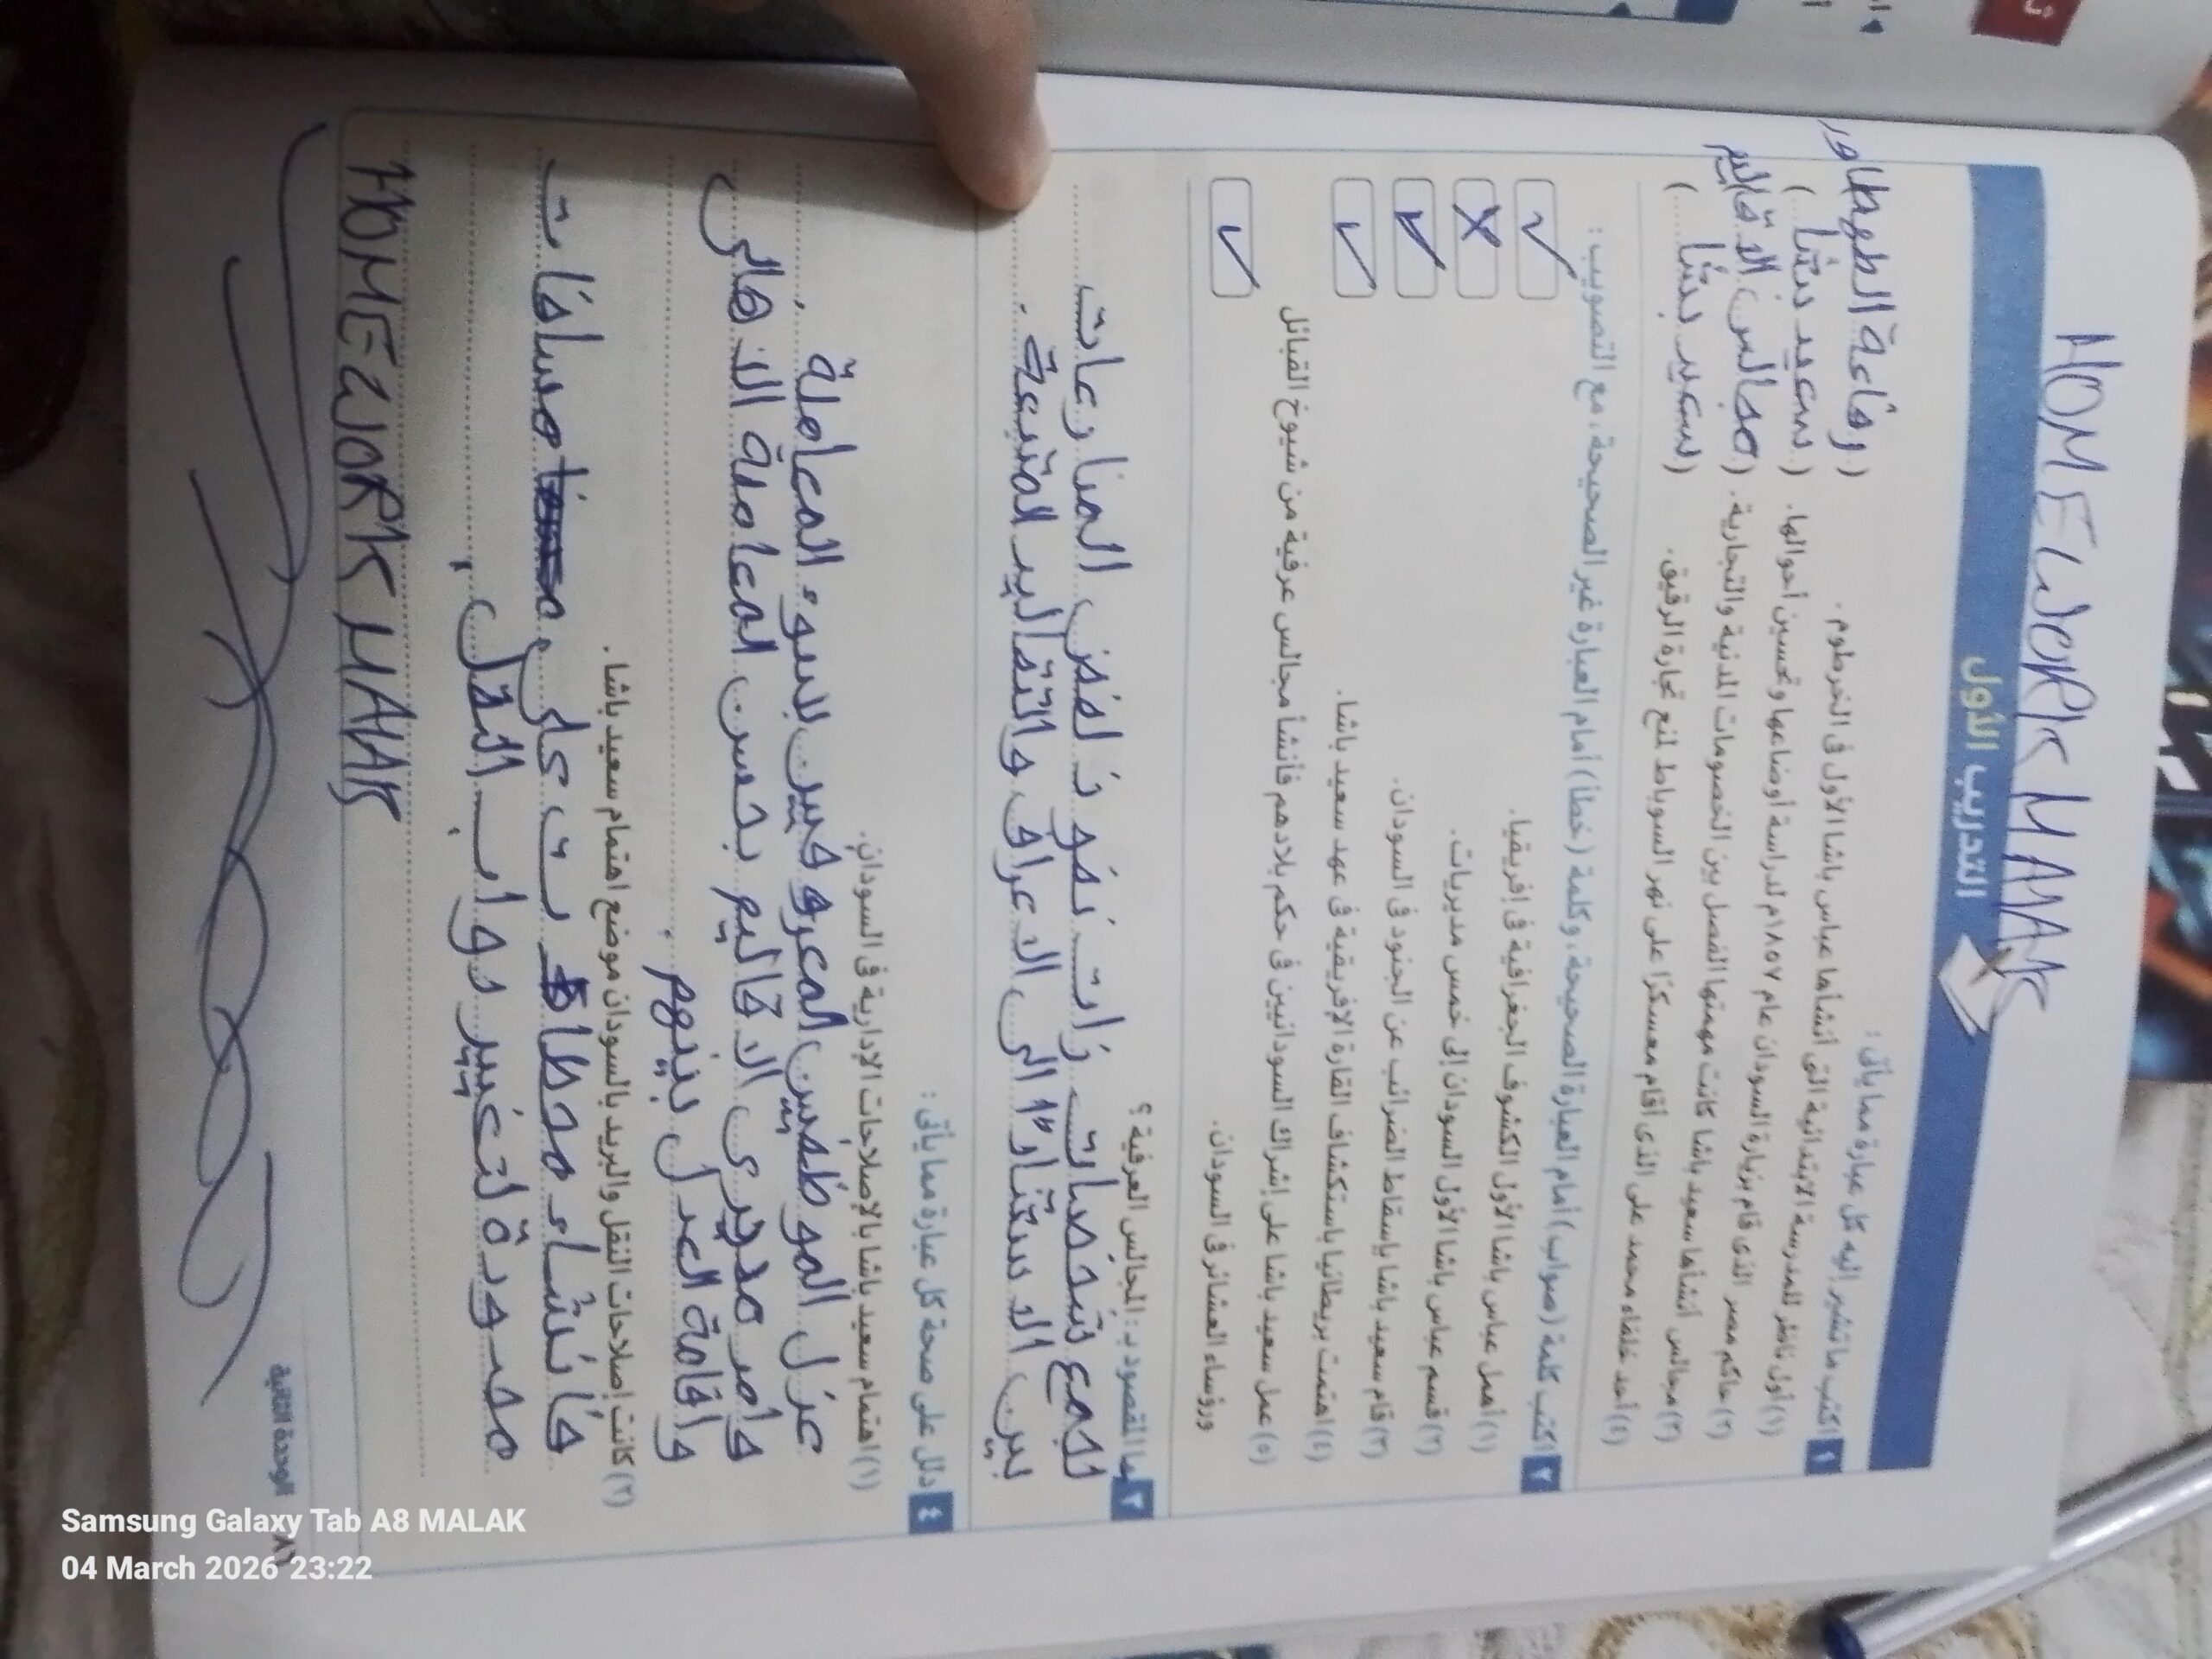 HOMEWORK MAMAK
التدريب الأول
١ اكتب ما تشير إليه كل عبارة مما يأتى :
(١) أول ناظر للمدرسة الابتدائية التى أنشأها عباس باشا الأول فى الخرطوم . (رفاعة الطهطاو
(٢) حاكم مصر الذى قام بزيارة السودان عام ١٨٥٧م لدراسة أوضاعها وتحسين أحوالها. (سعيد بشا)
(٣) مجالس أنشأها سعيد باشا كانت مهمتها الفصل بين الخصومات المدنية والتجارية. (مجالس الاقاليم
(٤) أحد خلفاء محمد على الذى أقام معسكرًا على نهر السوباط لمنع تجارة الرقيق. (سعيد بشا)
٢ اكتب كلمة (صواب) أمام العبارة الصحيحة، وكلمة (خطأ) أمام العبارة غير الصحيحة، مع التصويب :
(١) أهمل عباس باشا الأول الكشوف الجغرافية فى إفريقيا. ✓
(٢) قسم عباس باشا الأول السودان إلى خمس مديريات. ✗
(٣) قام سعيد باشا بإسقاط الضرائب عن الجنود فى السودان. ✓
(٤) اهتمت بريطانيا باستكشاف القارة الإفريقية فى عهد سعيد باشا. ✓
(٥) عمل سعيد باشا على إشراك السودانيين فى حكم بلادهم فأنشأ مجالس عرفية من شيوخ القبائل
ورؤساء العشائر فى السودان. ✓
٣ ما المقصود بـ : المجالس العرفية ؟
تجمع شخصات ذات نفوذ لفض المنازعات
بين الاستنادًا الى الاعراف والتقاليد المتبعة.
٤ دلل على صحة كل عبارة مما يأتى :
(١) اهتمام سعيد باشا بالإصلاحات الإدارية فى السودان.
عزل الموظفين المعروفين بسوء المعاملة.
وأمر مديرى الاقاليم بحسن المعاملة الاهالى
واقامة العدل بينهم .
(٢) كانت إصلاحات النقل والبريد بالسودان موضع اهتمام سعيد باشا .
فأنشاء محطات على مسافات
محدودة لتغيير دواب النقل.
HOMEWORK MAMAK
الوحدة الثانية
Samsung Galaxy Tab A8 MALAK
04 March 2026 23:22